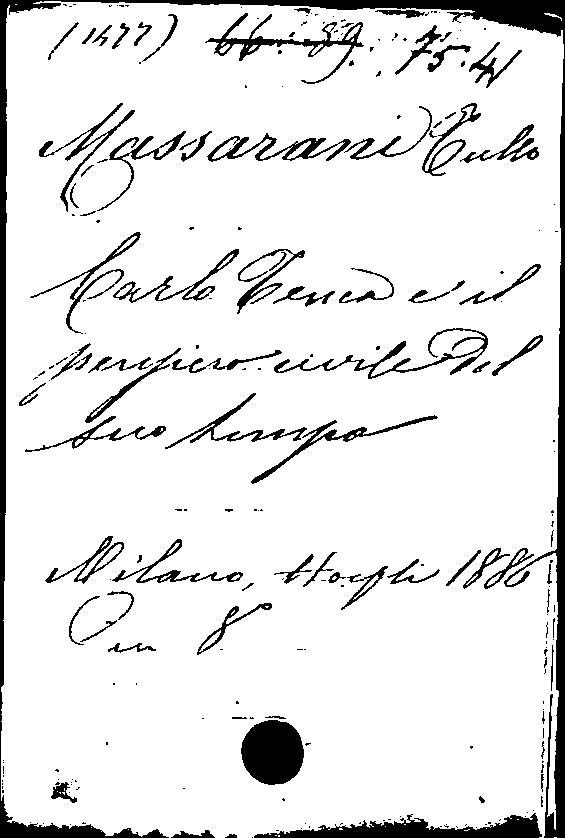 (1477) 66. 89. 75.4
Massarani Tullo
Carlo Tenca e il
pensiero civile del
suo tempo
Milano, Hoepli 1886
in 8°